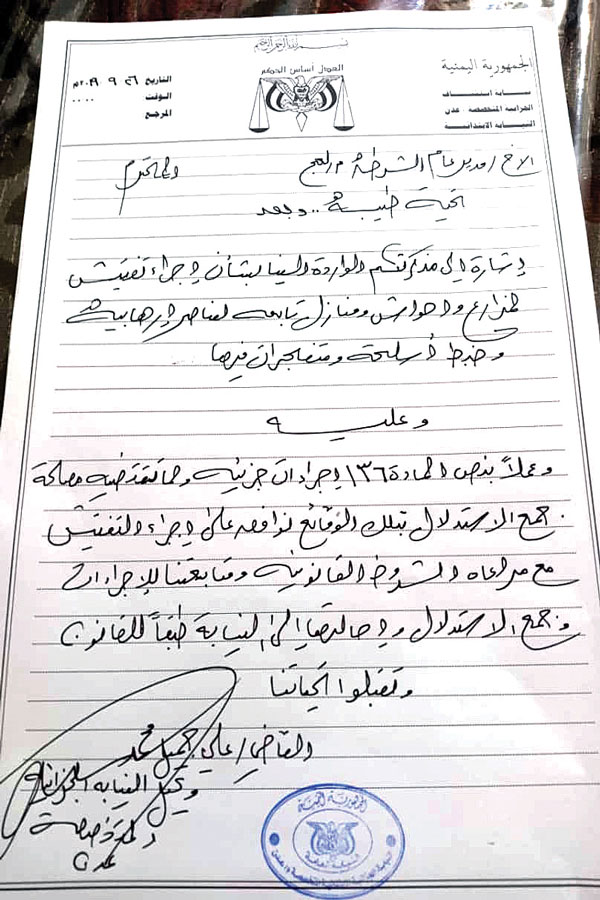 بسم الله الرحمن الرحيم
الجمهورية اليمنية
نيابة استئناف
الجزائية المتخصصة عدن
النيابة الابتدائية
العدل أساس الحكم
التاريخ ٢٦ ٩ ٢٠١٩م
الوقت
المرجع
الاخ / مدير عام الشرطة م/ لحج المحترم
تحية طيبة .. وبعد
إشارة إلى مذكرتكم الواردة إلينا بشأن إجراء تفتيش
لمزارع واحواش ومنازل تابعه لعناصر إرهابية
وضبط أسلحة ومتفجرات فيها
وعليه
وعملاً بنص المادة ١٣٦ إجراءات جزئيه ولما تقتضيه مصلحة
جمع الاستدلال بتلك الوقائع نوافق على إجراء التفتيش
مع مراعاه الشروط القانونيه ومتابعتنا للإجراءات
وجمع الاستدلال وإحالتها إلى النيابة طبقاً للقانون
وتقبلوا تحياتنا
القاضي / علي جميل محمد
وكيل النيابه الجزائية
المتخصصة
عدن
الجمهورية اليمنية
النيابة العامة